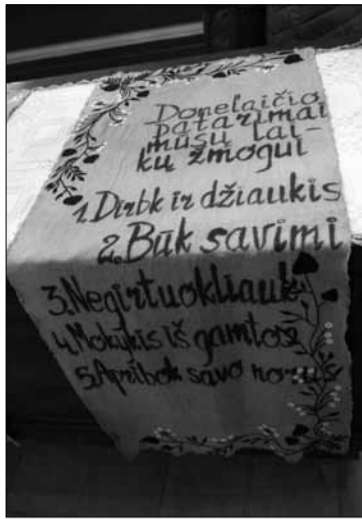 Donelaičio
patarimai
mūsų lai-
kų žmogui
1. Dirbk ir džiaukis
2. Būk savimi
3. Negirtuokliauk
4. Mokykis iš gamtos
5. Apribok savo norus